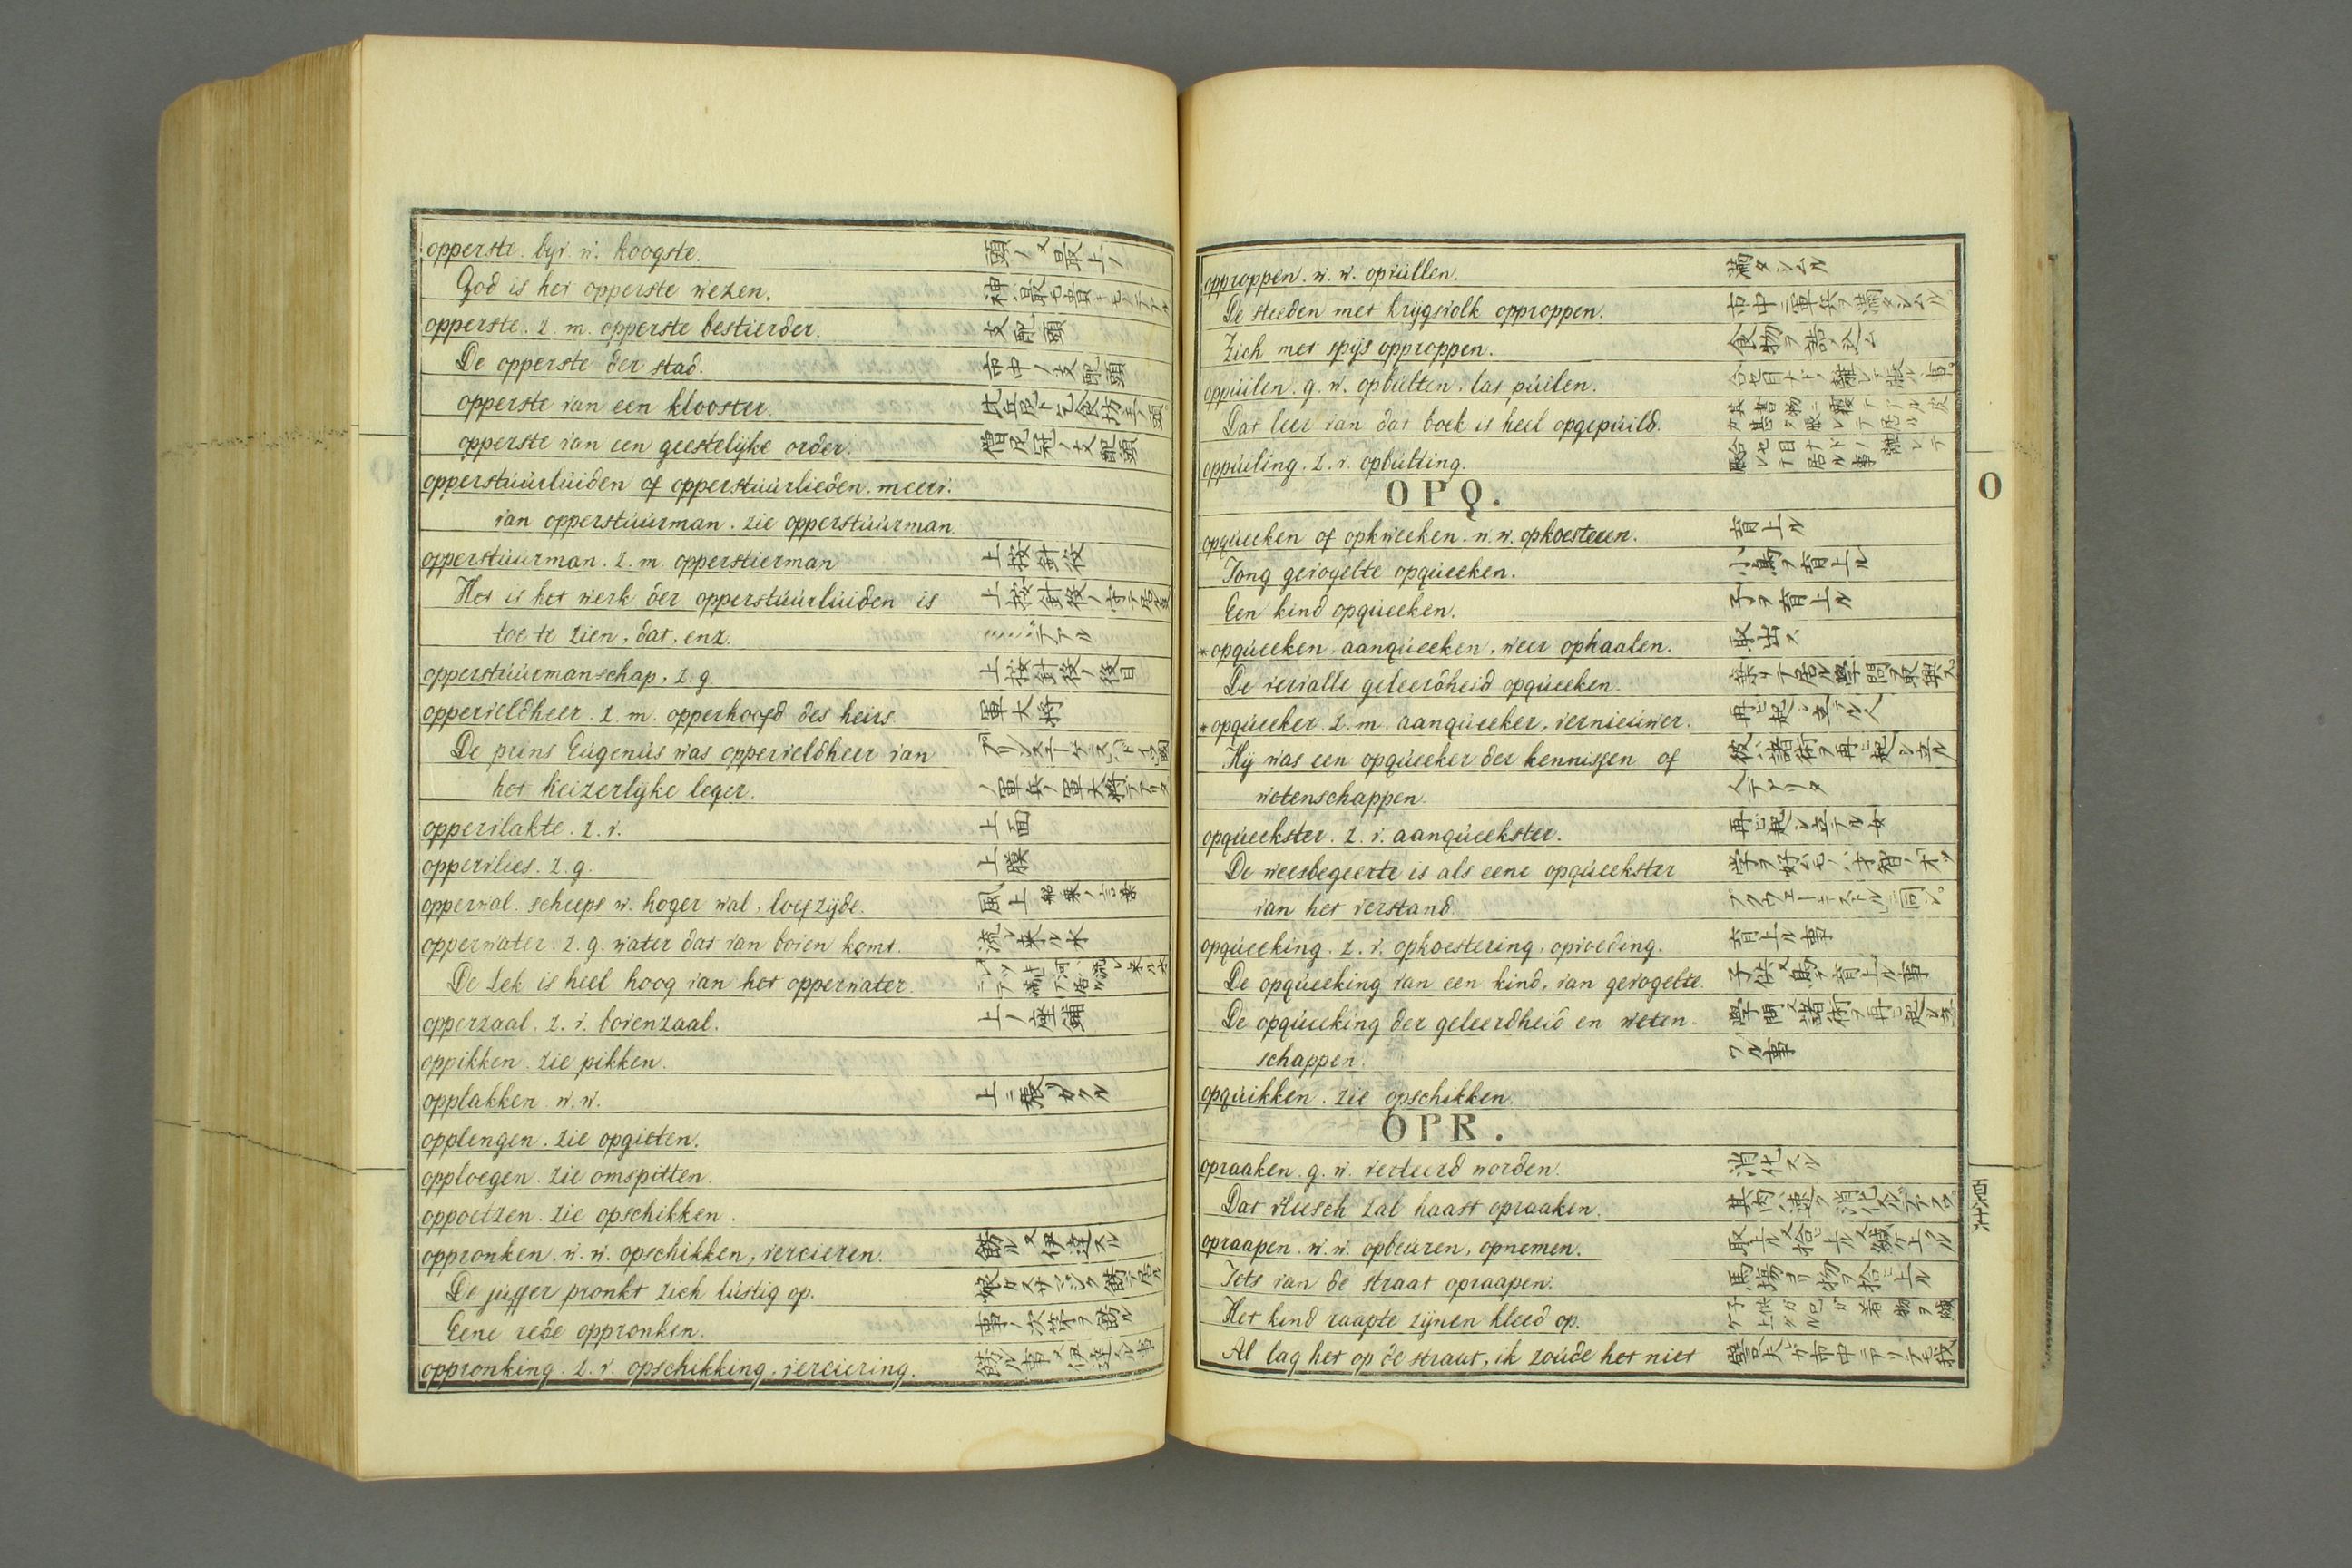 opperste. byv. w. hoogste. 頭ノ又最上ノ
God is het opperste wezen. 神ハ最モ貴トキモノデアル
opperste. z. m. opperste bestierder. 支配頭
De opperste der stad. 市中ノ支配頭
opperste van een klooster.
opperste van een geestelyke order. 僧尼寇ノ支配頭
opperstúúrlúiden of opperstúúrlieden. meerv.
van opperstúúrman. zie opperstúúrman.
opperstúúrman. z. m. opperstierman 上按針役
Het is het werk der opperstúúrlúiden is
toe te zien, dat. enz. デアル
opperstúúrmanschap. z. g. 上按針役ノ役目
opperveldheer. z. m. opperhoofd des heirs. 軍大将
De prins Eúgenús was opperveldheer van
het keizerlyke leger. ノ軍兵ノ軍大将デアリタ
oppervlakte. z. v. 上面
oppervlies. z. g. 上膜
opperwal. scheeps w. hoger wal, loefzijde. 風上 船乗ノ言葉
opperwater. z. g. water dat van boven komt. 流レ来ル水
De Lek is heel hoog van het opperwater.
opperzaal. z. v. bovenzaal. 上ノ座鋪
oppikken. zie pikken.
opplakken. w. w.
opplengen. zie opgieten.
opploegen. zie omspitten.
oppoetzen. zie opschikken.
oppronken. w. w. opschikken, vercieren. 餝ル又伊達スル
De júffer pronkt zich lústig op.
Eene rede oppronken. 事ノ次第ヲ餝ル
oppronking. z. v. opschikking, verciering. 餝ル事又伊達スル事
opproppen. w. w. opvúllen. 満タシムル
De steeden met krygsvolk opproppen. 市中ニ軍兵ヲ満タシムル
Zich met spijs opproppen. 食物ヲ詰メ込ム
oppúilen. g. w. opbúlten. las púilen.
Dat leer van dat boek is heel opgepúild.
oppúiling. z. v. opbúlting.
OPQ.
opqúeeken of opkweeken. w. w. opkoesteren. 育上ル
Jong gevogelte opqúeeken. 小鳥ヲ育上ル
Een kind opqúeeken. 子ヲ育上ル
*opqúeeken, aanqúeeken, weer ophaalen. 取出ス
De vervalle geleerdheid opqúeeken.
*opqúeeker. z. m. aanqúeeker, vernieúwer. 再ビ起シ立テル人
Hij was een opqúeeker der kennissen of 彼ハ諸術ヲ再ビ起シ立ル
wetenschappen. 人デアリタ
opqúeekster. z. v. aanqúeekster. 再ビ起シ立テル女
De weesbegeerte is als eene opqúeekster 学ヲ好ムモノハ才智ノオッ
van het verstand. プクウェーキステルニ同シ
opqúeeking. z. v. opkoestering, opvoeding. 育上ル事
De opqúeeking van een kind, van gevogelte. 子供又鳥ヲ育上ル事
De opqúeeking der geleerdheid en weten- 學問又諸術ヲ再ビ起シ立
schappen. ツル事
opqúikken. zie opschikken.
OPR.
opraaken. g. w. verteerd worden. 消化スル
Dat vleesch zal haast opraaken.
opraapen. w. w. opbeúren, opnemen.
Iets van de straat opraapen. 馬場ヨリ物ヲ拾ヒ上ル
Het kind raapte zijnen kleed op.
Al lag het op de straat, ik zoúde het niet
O